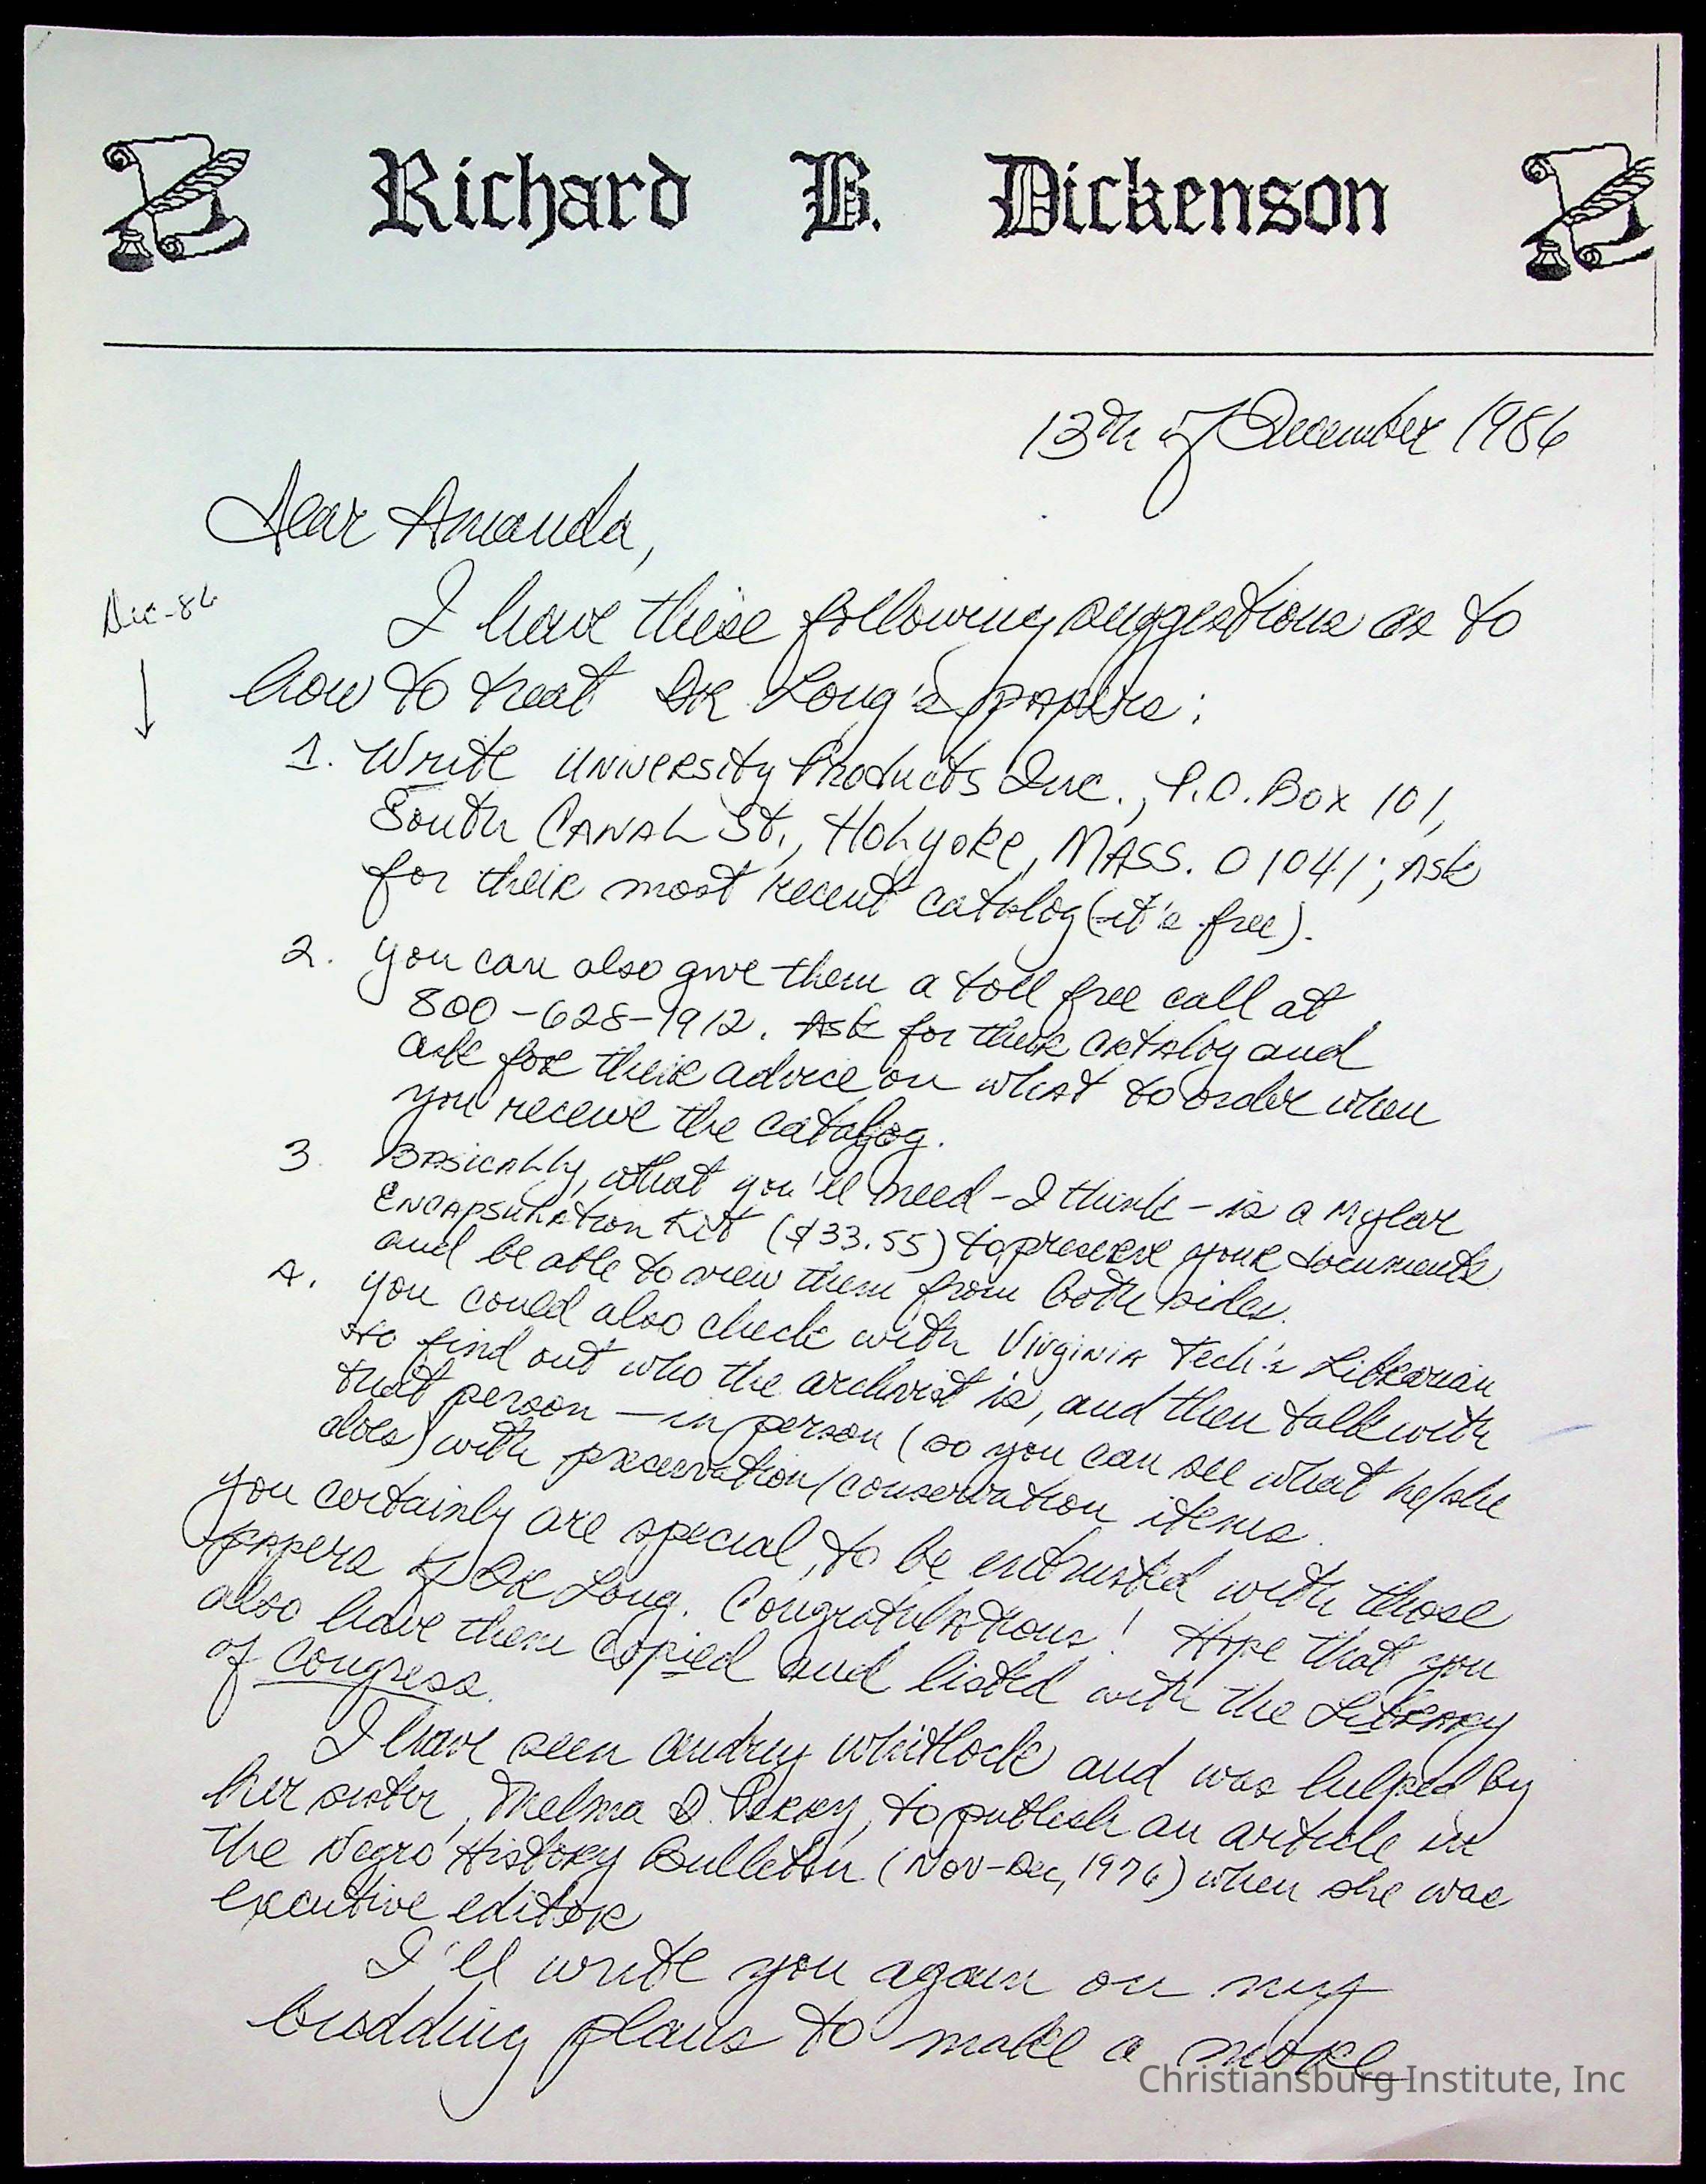 Richard B. Dickenson
13th of December 1986
Dear Amanda,
Dec-86
I have these following suggestions as to
how to treat DR Long's papers:
1. Write University Products Inc., P.O. Box 101,
South Canal St., Holyoke, MASS. 01041; Ask
for their most recent catalog (it's free).
2. you can also give them a toll free call at
800-628-1912. Ask for their catalog and
ask for their advice on what to order when
you receive the catalog.
3. Basically, what you'll need - I think - is a Mylar
Encapsulation Kit ($33.55) to preserve your documents
and be able to view them from both sides.
4. you could also check with Virginia Tech's Librarian
to find out who the archivist is, and then talk with
that person — in person (so you can see what he/she
does) with preservation/conservation items.
You certainly are special, to be entrusted with those
papers of DR Long. Congratulations! Hope that you
also have them copied and listed with the Library
of Congress.
I have seen Audrey Whitlock and was helped by
her sister, Thelma D. Perry, to publish an article in
the Negro History Bulletin (Nov-Dec, 1976) when she was
executive editor
I'll write you again on my
budding plans to make a more
Christiansburg Institute, Inc